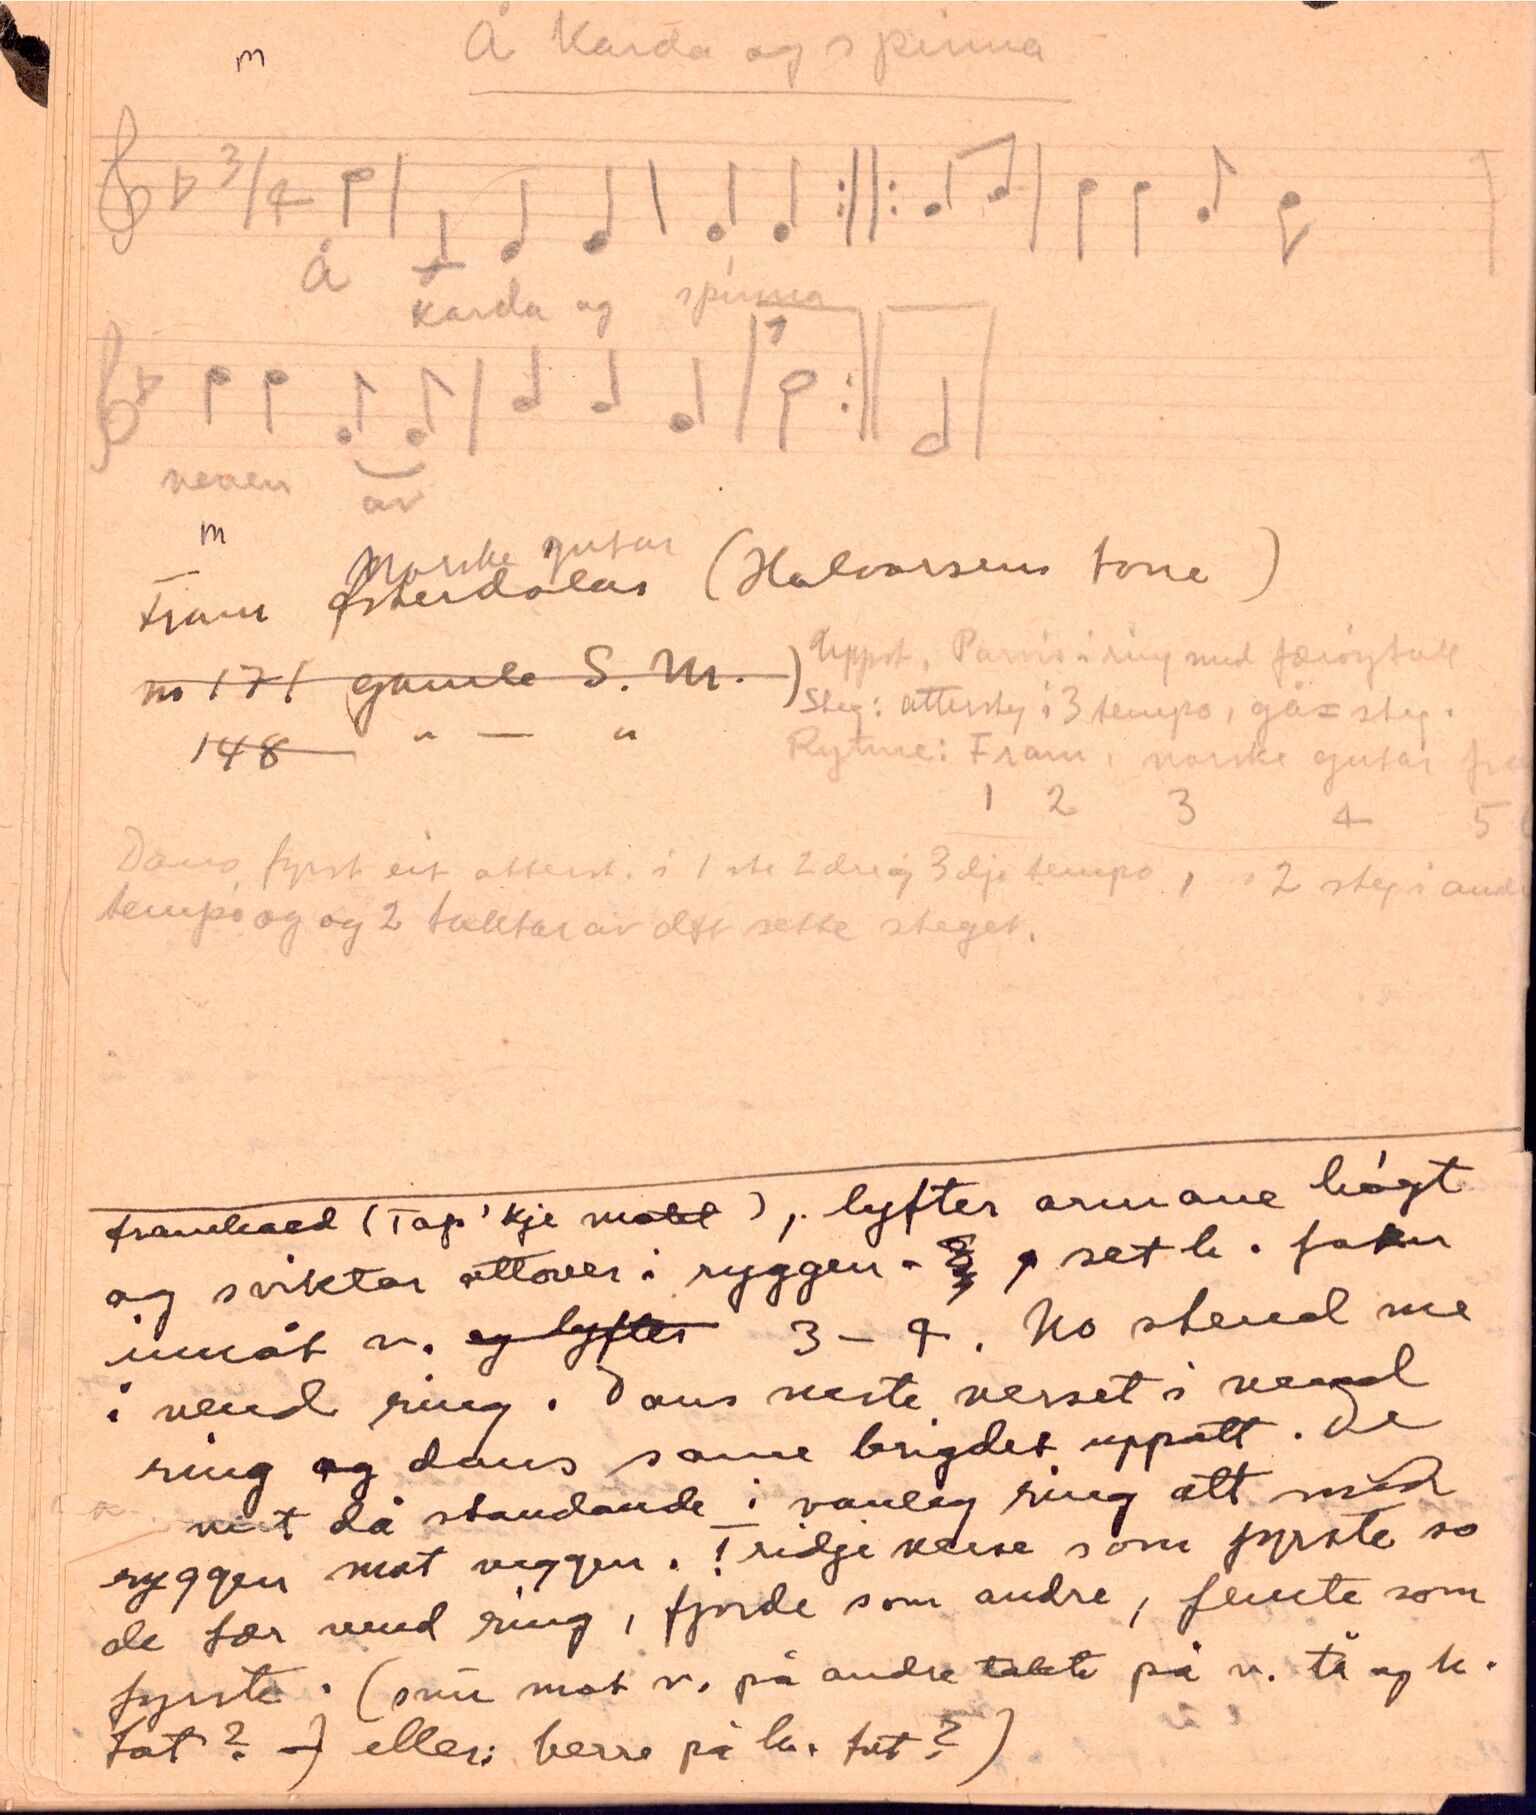 Å Karda og spinna
m
3/4
Å
Karda og spinna
1
veven av
m
Norske gutar
Fram Østerdølar (Halvorsens tone)
no 171 gamle S. M. )
148 " — "
Uppst. Parvis i ring med færøytak
Steg: attersteg i 3 tempo, gå= steg.
Rytme: Fram, norske gutar
1 2 3 4 5
Dans fyrst eit atterst. i 1ste 2dre og 3dje tempo, 2 steg i
tempo og og 2 taktar av det sette steget.
(Tap' kje ), lyfter armane høgt
og sviktar attover i ryggen - set h. foten
innåt v. og lyfter 3 - 4. No stend me
i vend ring. Dans neste verset i vend
ring og dans same brigdet uppatt. De
vert då standande i vanleg ring att med
ryggen mot veggen. Tridje verse som fyrste so
de fær vend ring, fjorde som andre, femte som
fyrste. (snu mot v. på andre takte på v. tå og h.
fot? ) eller: berre på h. fot? )